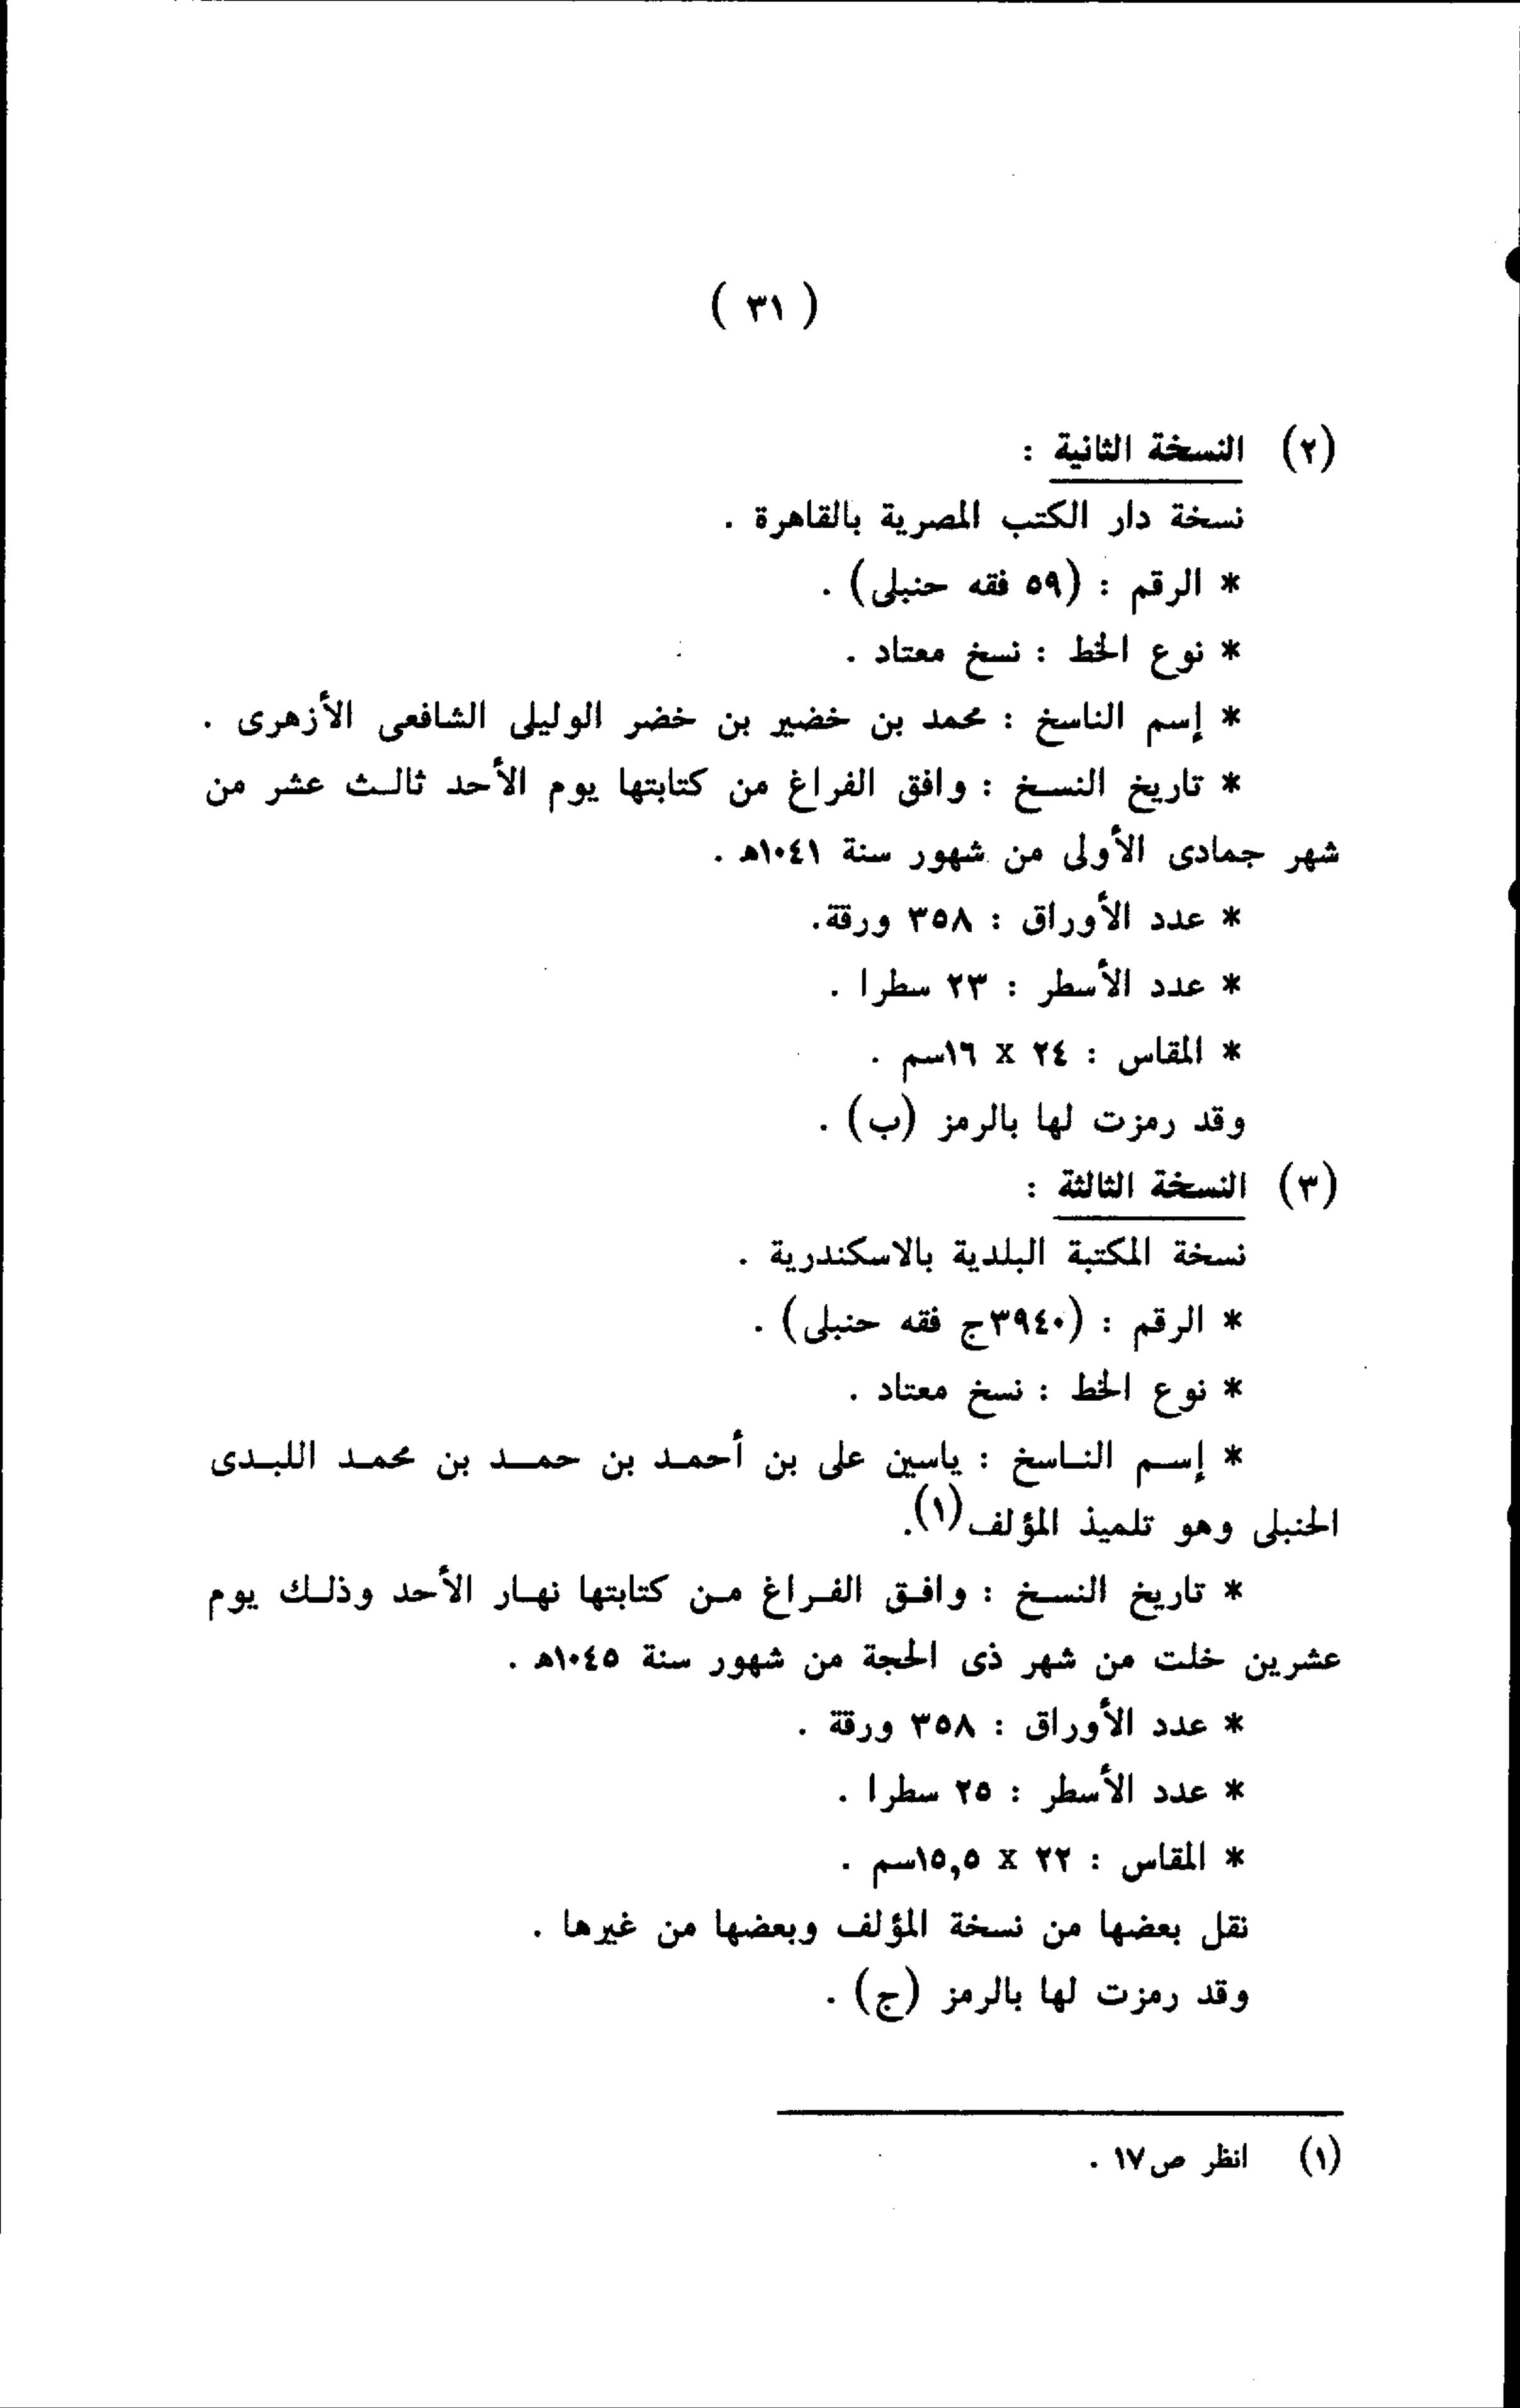 ( ٣١ )
(٢) النسخة الثانية :
نسخة دار الكتب المصرية بالقاهرة .
* الرقم : (٥٩ فقه حنبلى) .
* نوع الخط : نسخ معتاد .
* إسم الناسخ : محمد بن خضير بن خضر الوليلى الشافعى الأزهرى .
* تاريخ النسخ : وافق الفراغ من كتابتها يوم الأحد ثالث عشر من
شهر جمادى الأولى من شهور سنة ١٠٤١هـ .
* عدد الأوراق : ٣٥٨ ورقة.
* عدد الأسطر : ٢٣ سطرا .
* المقاس : ٢٤ x ١٦سم .
وقد رمزت لها بالرمز (ب) .
(٣) النسخة الثالثة :
نسخة المكتبة البلدية بالاسكندرية .
* الرقم : (٣٩٤٠ج فقه حنبلى) .
* نوع الخط : نسخ معتاد .
* إسم الناسخ : ياسين على بن أحمد بن حمد بن محمد اللبدى
الحنبلى وهو تلميذ المؤلف(١).
* تاريخ النسخ : وافق الفراغ من كتابتها نهار الأحد وذلك يوم
عشرين خلت من شهر ذى الحجة من شهور سنة ١٠٤٥هـ .
* عدد الأوراق : ٣٥٨ ورقة .
* عدد الأسطر : ٢٥ سطرا .
* المقاس : ٢٢ x ١٥,٥سم .
نقل بعضها من نسخة المؤلف وبعضها من غيرها .
وقد رمزت لها بالرمز (ج) .
(١) انظر ص١٧ .